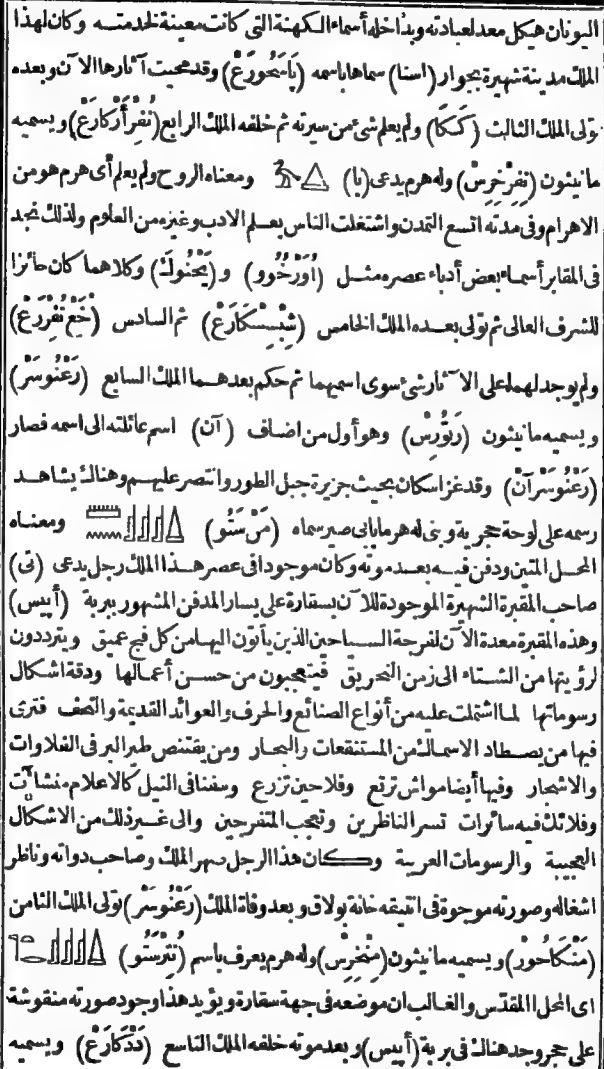 اليونان هيكل معد لعبادته وبداخله أسماء الكهنة التي كانت معينة لخدمته وكان لهذا
الملك مدينة شهيرة بجوار (اسنا) سماها باسمه (پاسَحُورَعْ) وقد محيت آثارها الآن وبعده
تولى الملك الثالث (كَكَا) ولم يعلم شئ من سيرته ثم خلفه الملك الرابع (نُفِرْأَرْكَارَعْ) ويسميه
مانيثون (نِفِرْخِرِسْ) وله هرم يدعى (با) ومعناه الروح ولم يعلم أى هرم هو من
الاهرام وفى مدته اتسع التمدن واشتغلت الناس بعلم الادب وغيره من العلوم ولذلك نجد
فى المقابر أسماء بعض أدباء عصره مثل (أُوَرْخُوو) و (يَحْنُوكْ) وكلاهما كان حائزا
للشرف العالى ثم تولى بعده الملك الخامس (شِبْسِسْكَارَعْ) ثم السادس (خَعْ نُفِرْرَعْ)
ولم يوجد لهما على الآثار شئ سوى اسميهما ثم حكم بعدهما الملك السابع (رَعْنُوسَرْ)
ويسميه مانيثون (رَتُورِسْ) وهو أول من اضاف (آن) اسم عائلته الى اسمه فصار
(رَعْنُوسَرْآنْ) وقد غزا سكان بحيث جزيرة جبل الطور وانتصر عليهم وهناك يشاهد
رسمه على لوحة حجرية وبنى له هرما بابى صير سماه (مَنْ سَتُو) ومعناه
المحل المتين ودفن فيه بعد موته وكان موجودا فى عصر هذا الملك رجل يدعى (تى)
صاحب المقبرة الشهيرة الموجودة للآن بسقارة على يسار المدفن المشهور ببربة (أبيس)
وهذه المقبرة معدة الآن لفرجة السياحين الذين يأتون اليها من كل فج عميق ويترددون
لرؤيتها من الشتاء الى زمن التحريق فيتعجبون من حسن أعمالها ودقة اشكال
رسوماتها لما اشتملت عليه من أنواع الصنائع والحرف والعوائد القديمة والتحف فترى
فيها من يصطاد الاسماك من المستنقعات والبحار ومن يقتنص طير البر فى الفلاوات
والاشجار وفيها أيضا مواش ترتع وفلاحين تزرع وسفنا فى النيل كالاعلام منشآت
وفلائك فيه سائرات تسر الناظرين وتعجب المتفرجين والى غير ذلك من الاشكال
العجيبة والرسومات الغريبة وكان هذا الرجل صهر الملك وصاحب دواته وناظر
اشغاله وصورته موجوة فى انتيقه خانة بولاق وبعد وفاة الملك (رَعْنُوسَرْ) تولى الملك الثامن
(مَنْكَاحُورْ) ويسميه مانيثون (مِنْخِرِسْ) وله هرم يعرف باسم (نُتِرْسَتُو)
اى المحل المقدّس والغالب ان موضعه فى جهة سقارة ويؤيد هذا وجود صورته منقوشة
على حجر وجد هناك فى بربة (أبيس) وبعد موته خلفه الملك التاسع (دَدْكَارَعْ) ويسميه